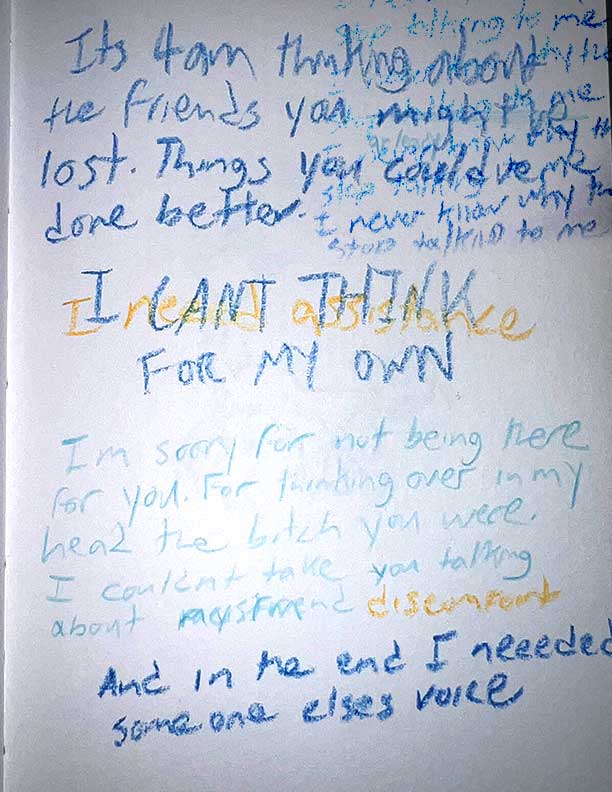 Its 4am thinking about
the friends you might be
lost. Things you couldve
done better.
stop talking to me
stop talking me
I never know why the
stop talking to me
I CANT THINK
I need assistance
FOR MY OWN
Im sorry for not being there
for you. For thinking over in my
head the bitch you were.
I couldnt take you talking
about discomfort
And in the end I neeeded
someone elses voice